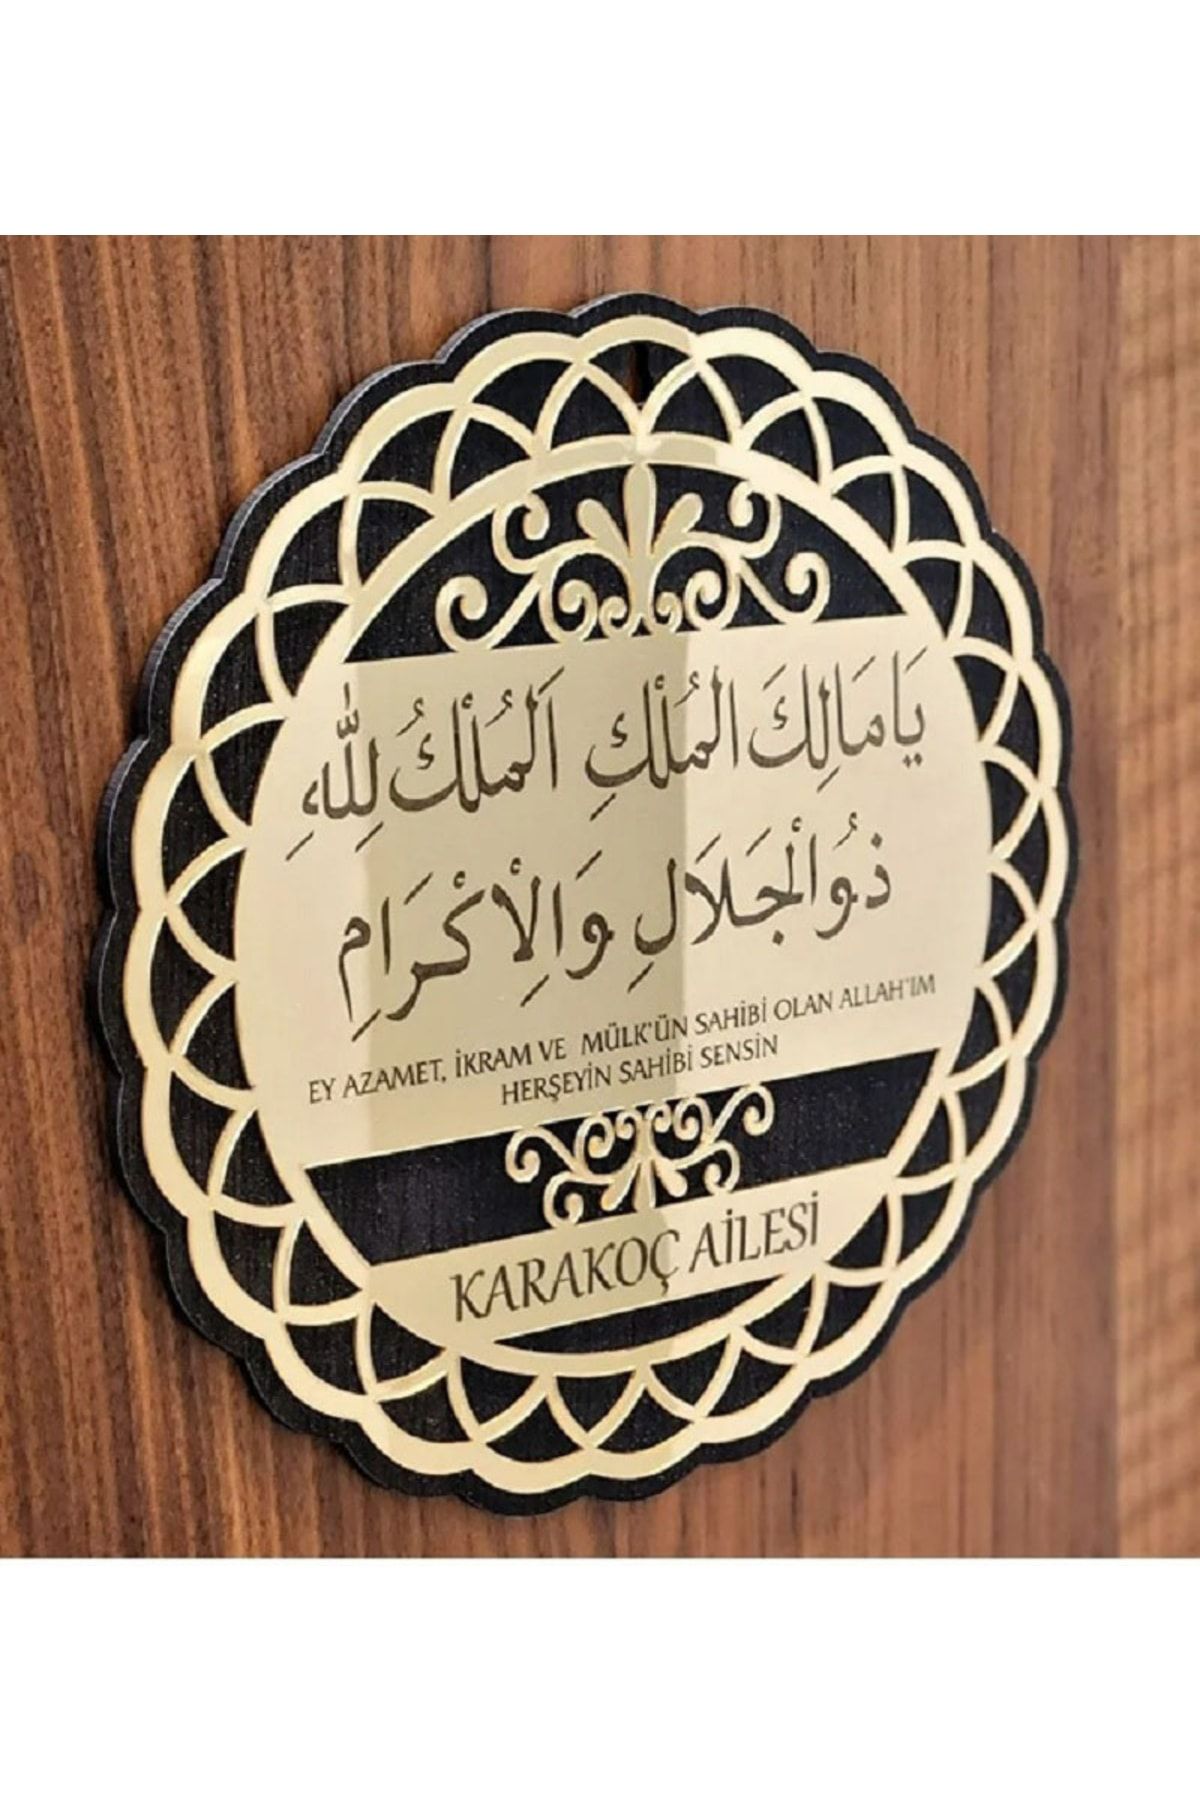 يَا مَالِكَ الْمُلْكِ اَلْمُلْكُ لِلّٰهِ
ذُوالْجَلَالِ وَالْاِكْرَامِ
EY AZAMET, İKRAM VE MÜLK'ÜN SAHİBİ OLAN ALLAH'IM
HERŞEYİN SAHİBİ SENSİN
KARAKOÇ AİLESİ